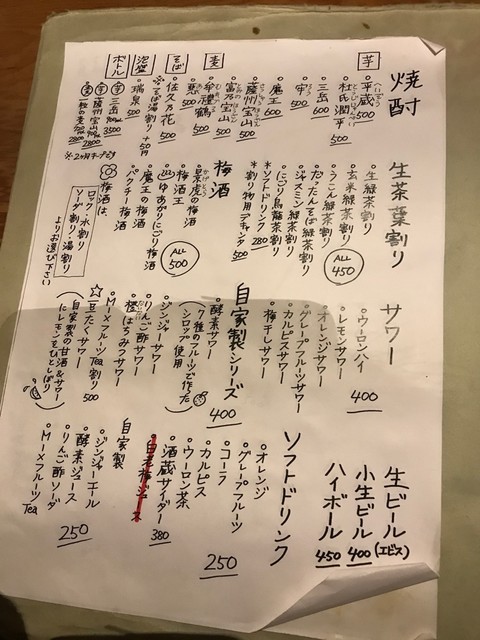 焼酎
芋
平蔵 500
杜氏潤平 500
三岳 600
宇 500
魔王 600
薩州宝山 500
富乃宝山 500
麦
牟禮鶴 500
そば
佐久乃花 500
泡盛
瑞泉 500
※そば湯割り +50円
ボトル
三岳 900ml 3500
薩州宝山 900ml 2800
※2ヶ月キープです
生茶葉割り
生緑茶割り
玄米緑茶割り
うこん緑茶割り
だったんそば緑茶割り
ジャスミン緑茶割り
にごり烏龍茶割り
ALL 450
*ソフトドリンク 280
*割り物用デキャンタ 500
梅酒
景虎の梅酒
梅酒王
ゆあがりにごり梅酒
魔王の梅酒
パクチー梅酒
ALL 500
梅酒は、
ロック・水割り
ソーダ割り・湯割り
よりお選び下さい
サワー
ウーロンハイ
レモンサワー
オレンジサワー
グレープフルーツサワー
カルピスサワー
梅干しサワー
400
自家製シリーズ
酵素サワー
(7種のフルーツで作ったシロップ使用)
400
ジンジャーサワー
りんご酢サワー
橙はちみつサワー
MIXフルーツTea割り 500
☆豆たくサワー
(自家製の甘酒&サワーにレモンをひとしぼり)
生ビール (エビス)
小生ビール 400
ハイボール 450
ソフトドリンク
オレンジ
グレープフルーツ
コーラ
カルピス
ウーロン茶
250
酒蔵サイダー 380
自家製
ジンジャーエール
酵素ジュース
りんご酢ソーダ
MIXフルーツTea
250